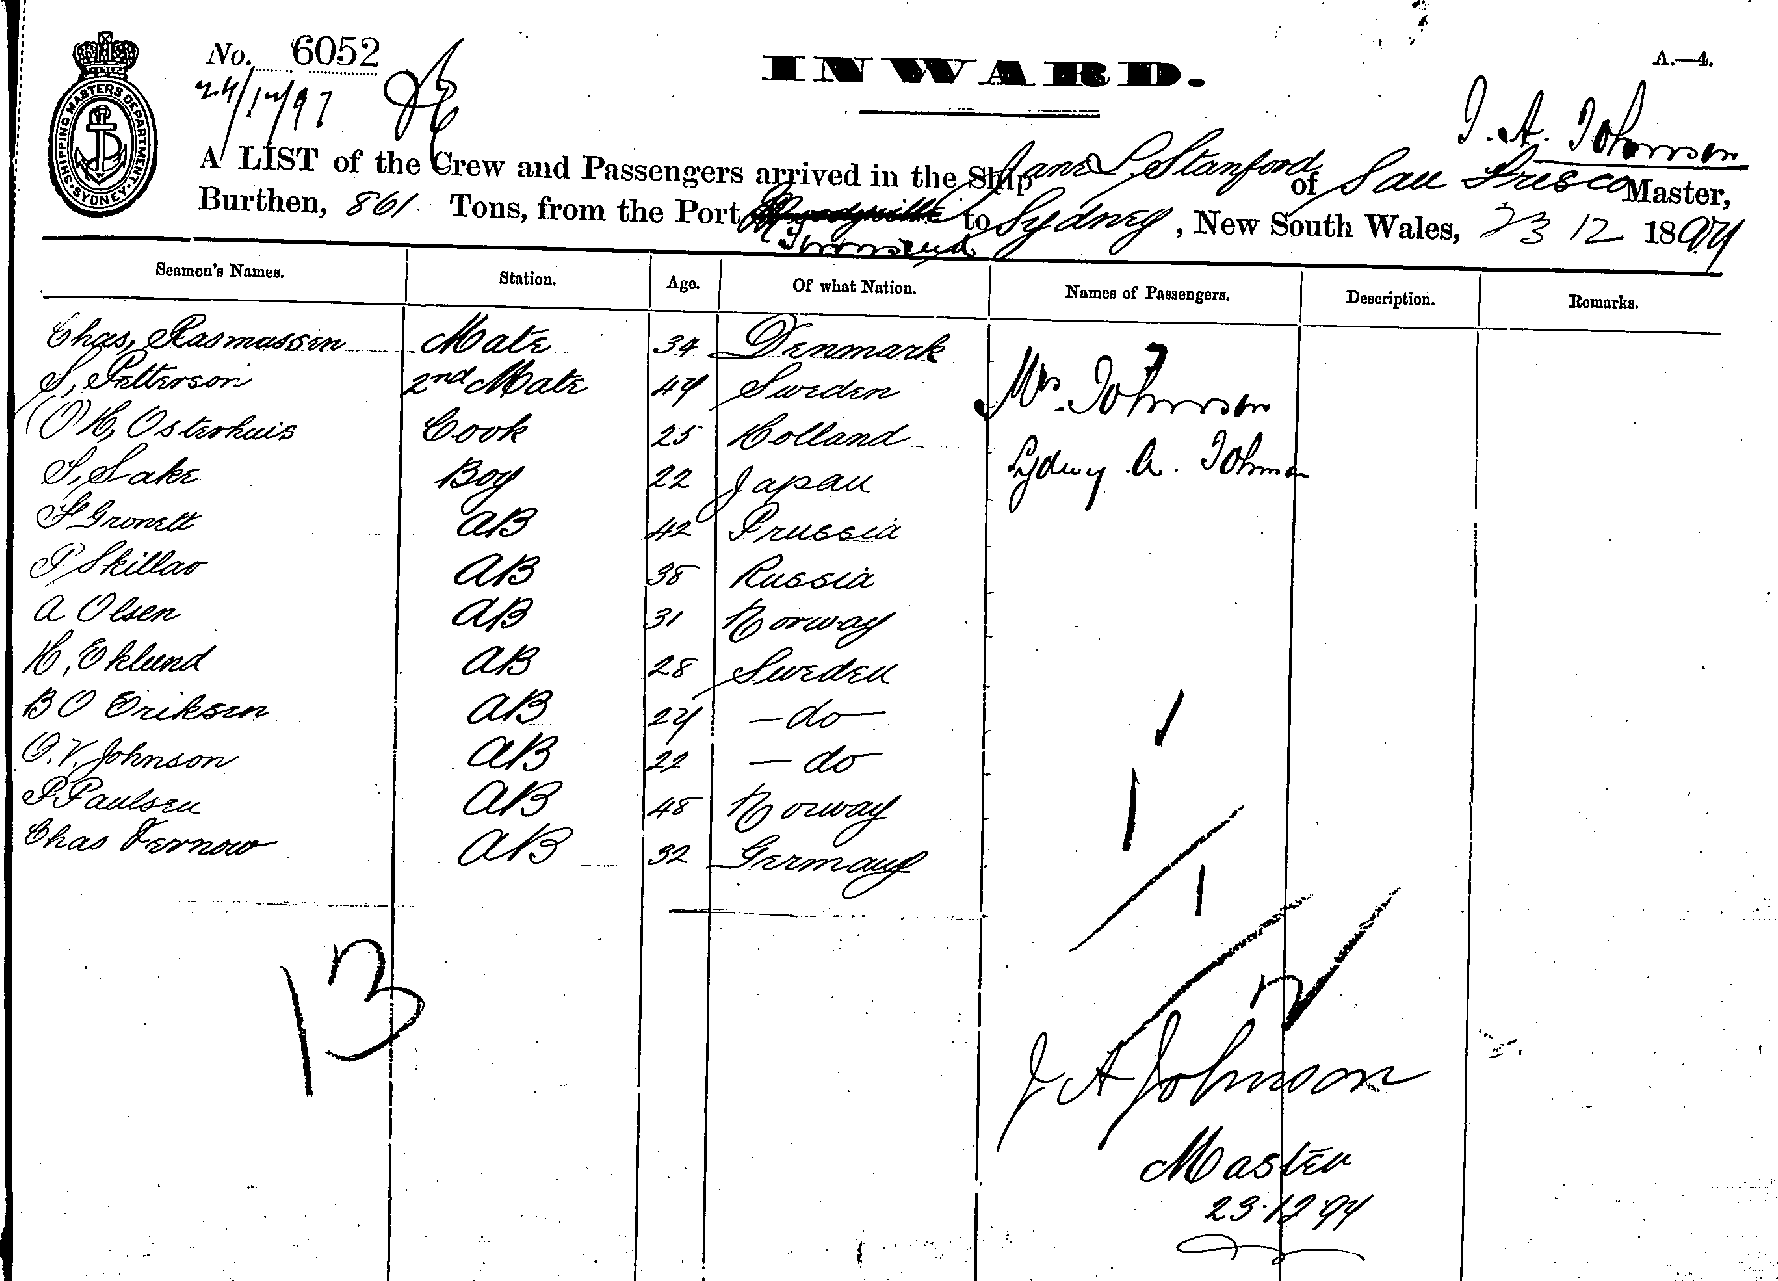 No. 6052
INWARD.
A.—4.
24/12/97
J. A. Johnson
SHIPPING MASTERS DEPARTMENT
SYDNEY
A LIST of the Crew and Passengers arrived in the Ship Jane L. Stanford of San Frisco Master,
Burthen, 861 Tons, from the Port Townsend to Sydney, New South Wales, 23 12 1897
Seamen's Names. Station. Age. Of what Nation. Names of Passengers. Description. Remarks.
Chas, Rasmassen Mate 34 Denmark
Mrs. Johnson
S, Petterson 2nd Mate 47 Sweden
O H, Osterhuis Cook 25 Holland
Sydney A. Johnson
S, Sake Boy 22 Japan
F Gronett AB 42 Prussia
P Skillao AB 38 Russia
A Olsen AB 31 Norway
H, Eklund AB 28 Sweden
B O Eriksen AB 27 — do —
O. V. Johnson AB 22 — do
P Paulsen AB 48 Norway
Chas Vernow AB 32 Germany
13
2
J A Johnson
Master
23.12 97